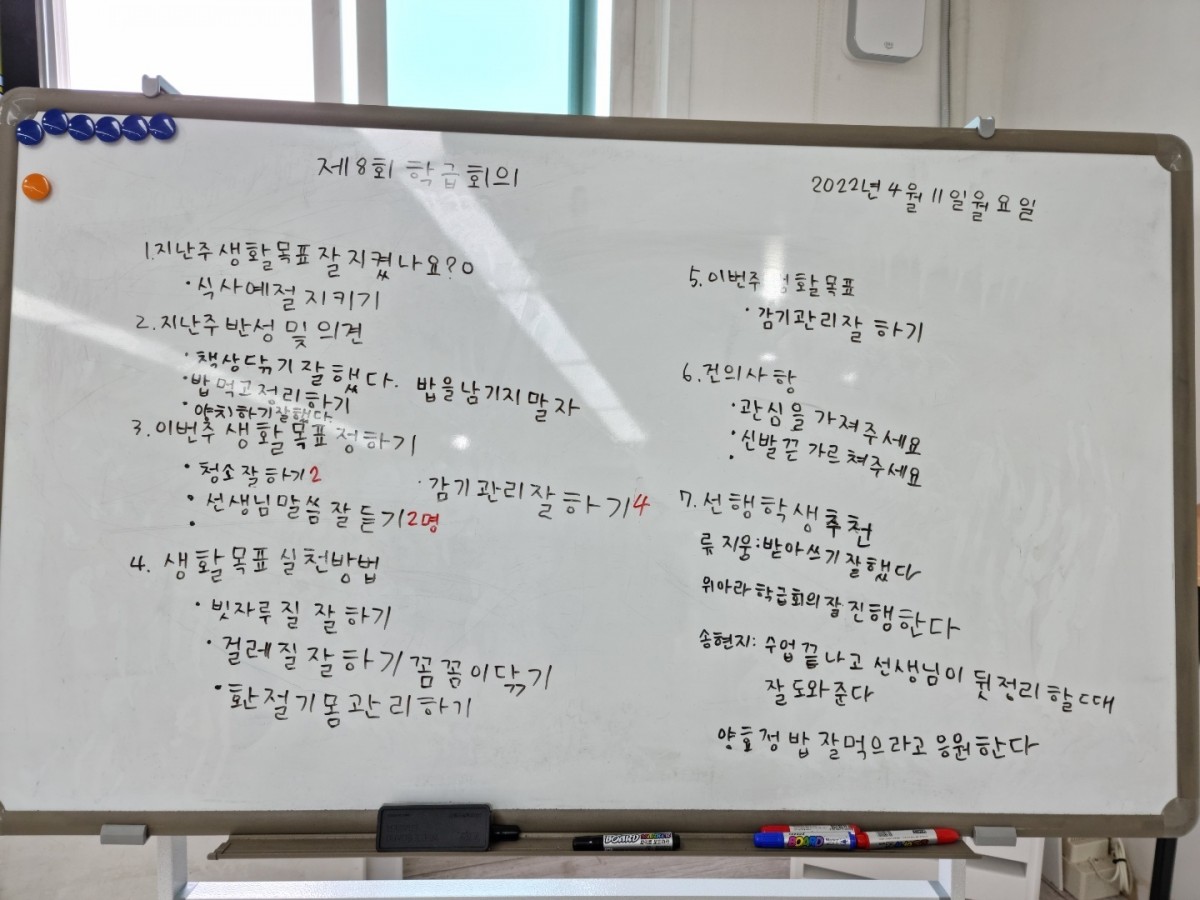 제8회 학급회의
2022년 4월 11일 월요일
1. 지난주 생활목표 잘 지켰나요? O
· 식사예절 지키기
2. 지난주 반성 및 의견
· 책상닦기 잘했다.
· 밥먹고 정리하기
밥을 남기지 말자
· 양치하기 잘했다.
3. 이번주 생활목표 정하기
· 청소 잘하기 2
· 선생님 말씀 잘 듣기 2명
· 감기관리 잘하기 4
4. 생활목표 실천방법
· 빗자루질 잘하기
· 걸레질 잘하기 꼼꼼이닦기
· 환절기 몸관리하기
5. 이번주 생활목표
· 감기관리잘 하기
6. 건의사항
· 관심을 가져주세요
· 신발끈 가르쳐주세요
7. 선행학생 추천
류지웅: 받아쓰기 잘했다
위아라 학급회의 잘 진행한다
송현지: 수업 끝나고 선생님이 뒷정리 할 때
잘 도와준다
양효정 밥 잘먹으라고 응원한다
BOARD
BOARD